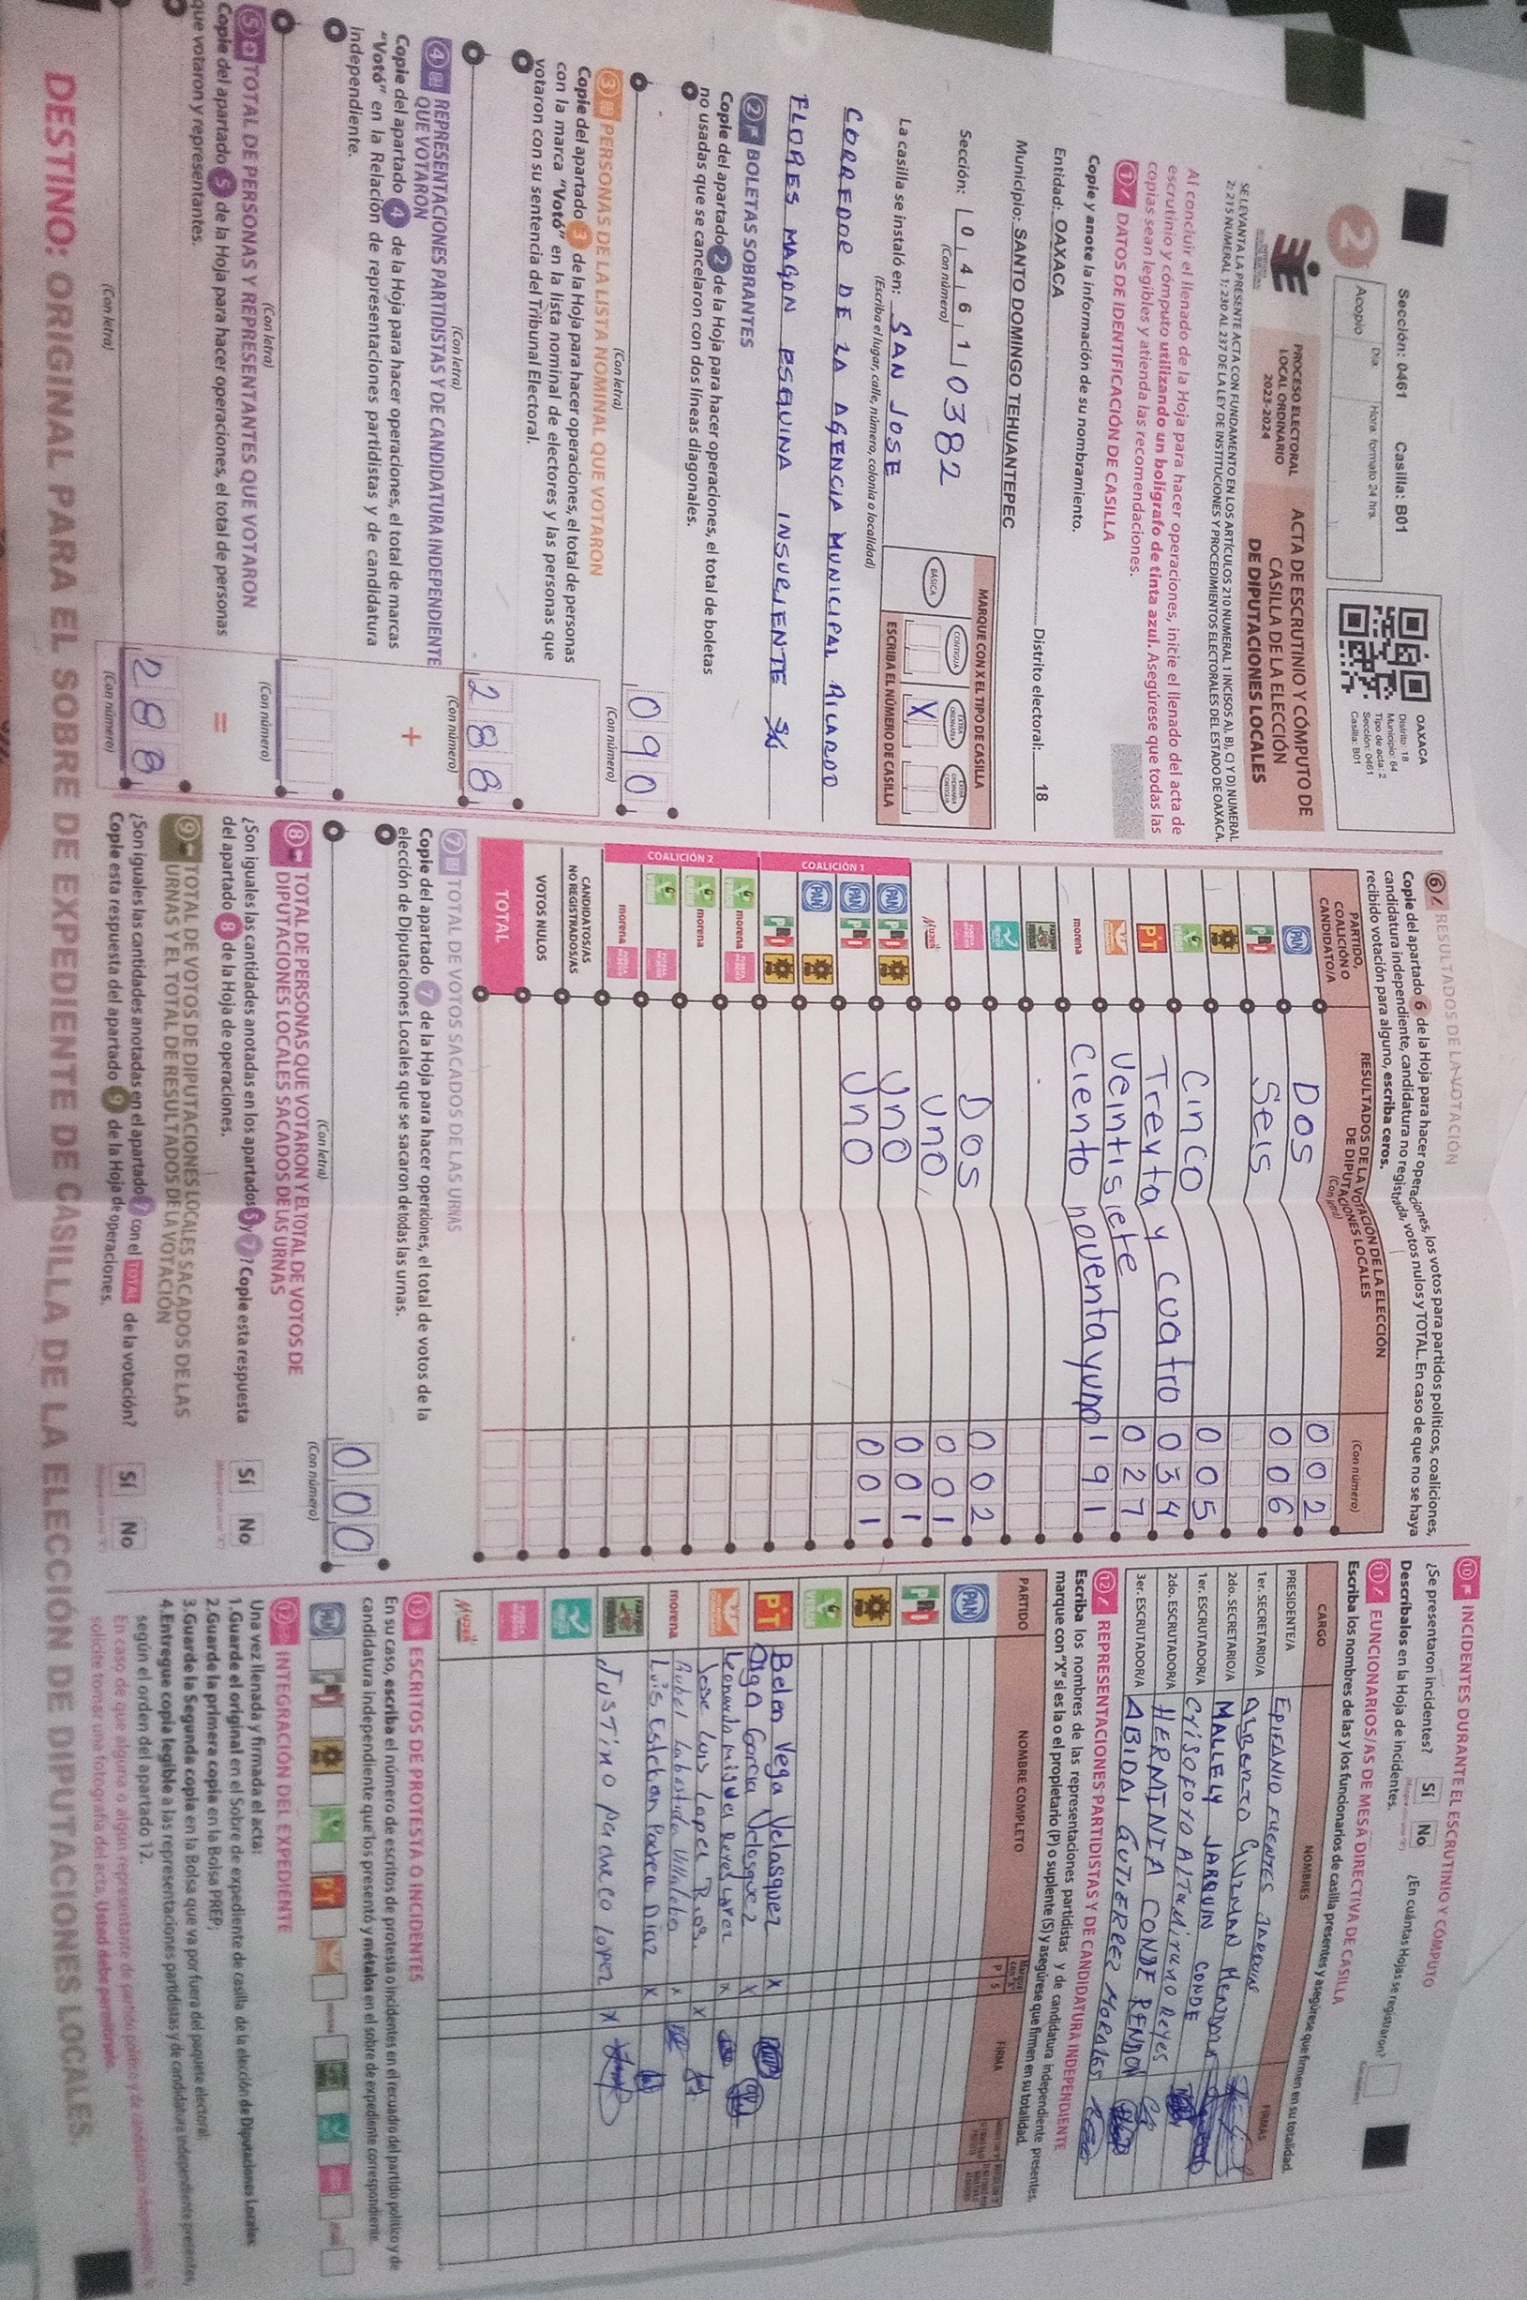 Sección: 0461 Casilla: B01
2
Acopio
Día:
Hora: formato 24 hrs.
OAXACA
Distrito: 18
Municipio: 64
Tipo de acta: 2
Sección: 0461
Casilla: B01
PROCESO ELECTORAL
LOCAL ORDINARIO
2023-2024
ACTA DE ESCRUTINIO Y CÓMPUTO DE
CASILLA DE LA ELECCIÓN
DE DIPUTACIONES LOCALES
SE LEVANTA LA PRESENTE ACTA CON FUNDAMENTO EN LOS ARTÍCULOS 210 NUMERAL 1 INCISOS A), B), C) Y D) NUMERAL
2; 215 NUMERAL 1; 230 AL 237 DE LA LEY DE INSTITUCIONES Y PROCEDIMIENTOS ELECTORALES DEL ESTADO DE OAXACA.
Al concluir el llenado de la Hoja para hacer operaciones, inicie el llenado del acta de
escrutinio y cómputo utilizando un bolígrafo de tinta azul. Asegúrese que todas las
copias sean legibles y atienda las recomendaciones.
1 DATOS DE IDENTIFICACIÓN DE CASILLA
Copie y anote la información de su nombramiento.
Entidad: OAXACA Distrito electoral: 18
Municipio: SANTO DOMINGO TEHUANTEPEC
Sección: 0 4 6 1 10382
(Con número)
MARQUE CON X EL TIPO DE CASILLA
BÁSICA
CONTIGUA
EXTRAORDINARIA
EXTRAORDINARIA CONTIGUA
X
ESCRIBA EL NÚMERO DE CASILLA
La casilla se instaló en: SAN JOSE
(Escriba el lugar, calle, número, colonia o localidad)
CORREDOR DE LA AGENCIA MUNICIPAL RICARDO
FLORES MAGON ESQUINA INSURJENTE
2 BOLETAS SOBRANTES
Copie del apartado 2 de la Hoja para hacer operaciones, el total de boletas
no usadas que se cancelaron con dos líneas diagonales.
090
(Con letra) (Con número)
3 PERSONAS DE LA LISTA NOMINAL QUE VOTARON
Copie del apartado 3 de la Hoja para hacer operaciones, el total de personas
con la marca "Votó" en la lista nominal de electores y las personas que
votaron con su sentencia del Tribunal Electoral.
288
(Con letra) (Con número)
4 REPRESENTACIONES PARTIDISTAS Y DE CANDIDATURA INDEPENDIENTE
QUE VOTARON
+
Copie del apartado 4 de la Hoja para hacer operaciones, el total de marcas
"Votó" en la Relación de representaciones partidistas y de candidatura
independiente.
(Con letra) (Con número)
5 TOTAL DE PERSONAS Y REPRESENTANTES QUE VOTARON
=
Copie del apartado 5 de la Hoja para hacer operaciones, el total de personas
que votaron y representantes.
288
(Con letra) (Con número)
6 RESULTADOS DE LA VOTACIÓN
Copie del apartado 6 de la Hoja para hacer operaciones, los votos para partidos políticos, coaliciones,
candidatura independiente, candidatura no registrada, votos nulos y TOTAL. En caso de que no se haya
recibido votación para alguno, escriba ceros.
PARTIDO,
COALICIÓN O
CANDIDATO/A
RESULTADOS DE LA VOTACIÓN DE LA ELECCIÓN
DE DIPUTACIONES LOCALES
(Con letra)
(Con número)
PAN DOS 002
PRI Seis 006
PRD
VERDE Cinco 005
PT Treyta y cuatro 034
Veintisiete 027
morena Ciento noventayuno 191
Dos 002
MUJER uno, 001
COALICIÓN 1
PAN PRI PRD Uno 001
PAN PRI Uno 001
PAN PRD
PRI PRD
COALICIÓN 2
morena
morena
morena
CANDIDATOS/AS
NO REGISTRADOS/AS
VOTOS NULOS
TOTAL
7 TOTAL DE VOTOS SACADOS DE LAS URNAS
Copie del apartado 7 de la Hoja para hacer operaciones, el total de votos de la
elección de Diputaciones Locales que se sacaron de todas las urnas.
000
(Con letra) (Con número)
8 TOTAL DE PERSONAS QUE VOTARON Y EL TOTAL DE VOTOS DE
DIPUTACIONES LOCALES SACADOS DE LAS URNAS
¿Son iguales las cantidades anotadas en los apartados 5 y 7? Copie esta respuesta
del apartado 8 de la Hoja de operaciones.
Sí No
9 TOTAL DE VOTOS DE DIPUTACIONES LOCALES SACADOS DE LAS
URNAS Y EL TOTAL DE RESULTADOS DE LA VOTACIÓN
¿Son iguales las cantidades anotadas en el apartado 7 con el TOTAL de la votación?
Copie esta respuesta del apartado 9 de la Hoja de operaciones.
Sí No
10 INCIDENTES DURANTE EL ESCRUTINIO Y CÓMPUTO
¿Se presentaron incidentes? Sí No ¿En cuántas Hojas se registraron?
Descríbalos en la Hoja de incidentes.
11 FUNCIONARIOS/AS DE MESA DIRECTIVA DE CASILLA
Escriba los nombres de las y los funcionarios de casilla presentes y asegúrese que firmen en su totalidad.
CARGO NOMBRES FIRMAS
PRESIDENTE/A EPIFANIO FUENTES JARQUIN
1er. SECRETARIO/A ALBERTO GUZMAN
2do. SECRETARIO/A MALLELY JARQUIN CONDE
1er. ESCRUTADOR/A CRISOFORO ALTAMIRANO Reyes
2do. ESCRUTADOR/A HERMINIA CONDE RENDON
3er. ESCRUTADOR/A ABIDAI GUTIERREZ MORALES
12 REPRESENTACIONES PARTIDISTAS Y DE CANDIDATURA INDEPENDIENTE
Escriba los nombres de las representaciones partidistas y de candidatura independiente presentes,
marque con "X" si es la o el propietario (P) o suplente (S) y asegúrese que firmen en su totalidad.
PARTIDO NOMBRE COMPLETO P S FIRMA
PAN
PRI
PRD
VERDE
PT Belen Vega Velasquez X
Olga Garcia Velasquez X
Leonardo Miguel Reyes X
Jose Luis Lopez Rios. X
morena Rubel Labastida Villalobo X
Luis Esteban Perera Diaz X
JUSTINO pacheco Lopez X
MUJER
13 ESCRITOS DE PROTESTA O INCIDENTES
En su caso, escriba el número de escritos de protesta o incidentes en el recuadro del partido político y de
candidatura independiente que los presentó y métalos en el sobre de expediente correspondiente.
INTEGRACIÓN DEL EXPEDIENTE
Una vez llenada y firmada el acta:
1.Guarde el original en el Sobre de expediente de casilla de la elección de Diputaciones Locales
2.Guarde la primera copia en la Bolsa PREP;
3.Guarde la Segunda copia en la Bolsa que va por fuera del paquete electoral;
4.Entregue copia legible a las representaciones partidistas y de candidatura independiente presentes,
según el orden del apartado 12.
En caso de que alguna o algún representante de partido político y de candidatura independiente, le
solicite tomar una fotografía del acta, Usted debe permitírselo.
DESTINO: ORIGINAL PARA EL SOBRE DE EXPEDIENTE DE CASILLA DE LA ELECCIÓN DE DIPUTACIONES LOCALES.